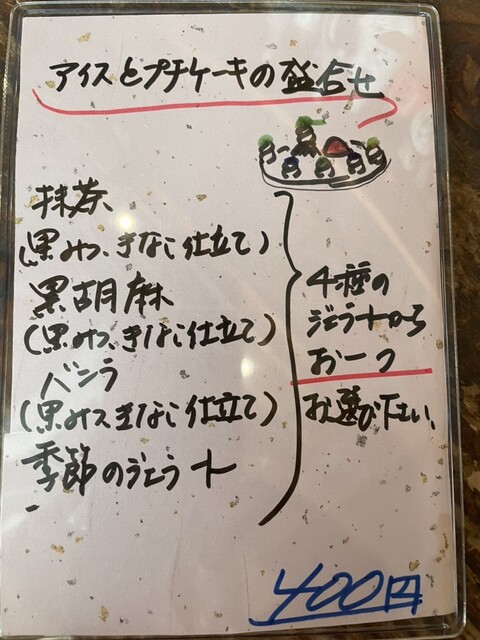 アイスとプチケーキの盛合せ
抹茶
(黒みつ、きなこ仕立て)
黒胡麻
(黒みつ、きなこ仕立て)
バニラ
(黒みつきなこ仕立て)
季節のジェラート
4種の
ジェラートから
お一つ
お選び下さい、
400円